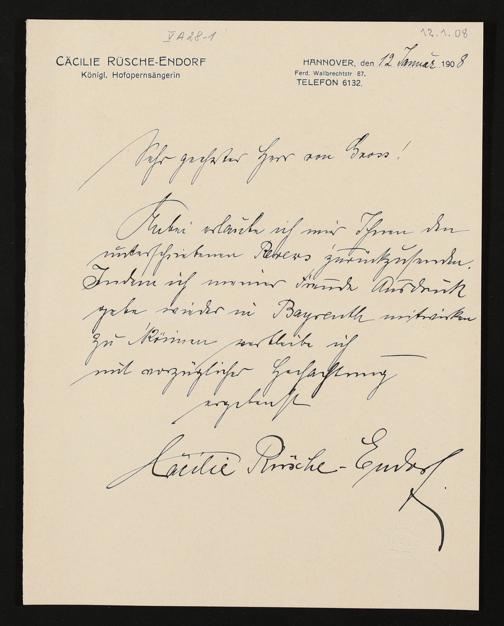 V A 28-1
12.1.08
CÄCILIE RÜSCHE-ENDORF
Königl. Hofopernsängerin
HANNOVER, den 12 Januar 1908
Ferd. Wallbrechtstr 87.
TELEFON 6132.
Sehr geehrter Herr von Gross!
Anbei erlaube ich mir Ihnen den
unterschriebenen Revers zurückzusenden.
Indem ich meiner Freude Ausdruck
gebe wieder in Bayreuth mitwirken
zu können verbleibe ich
mit vorzüglicher Hochachtung
ergebenst
Cäcilie Rüsche-Endorf